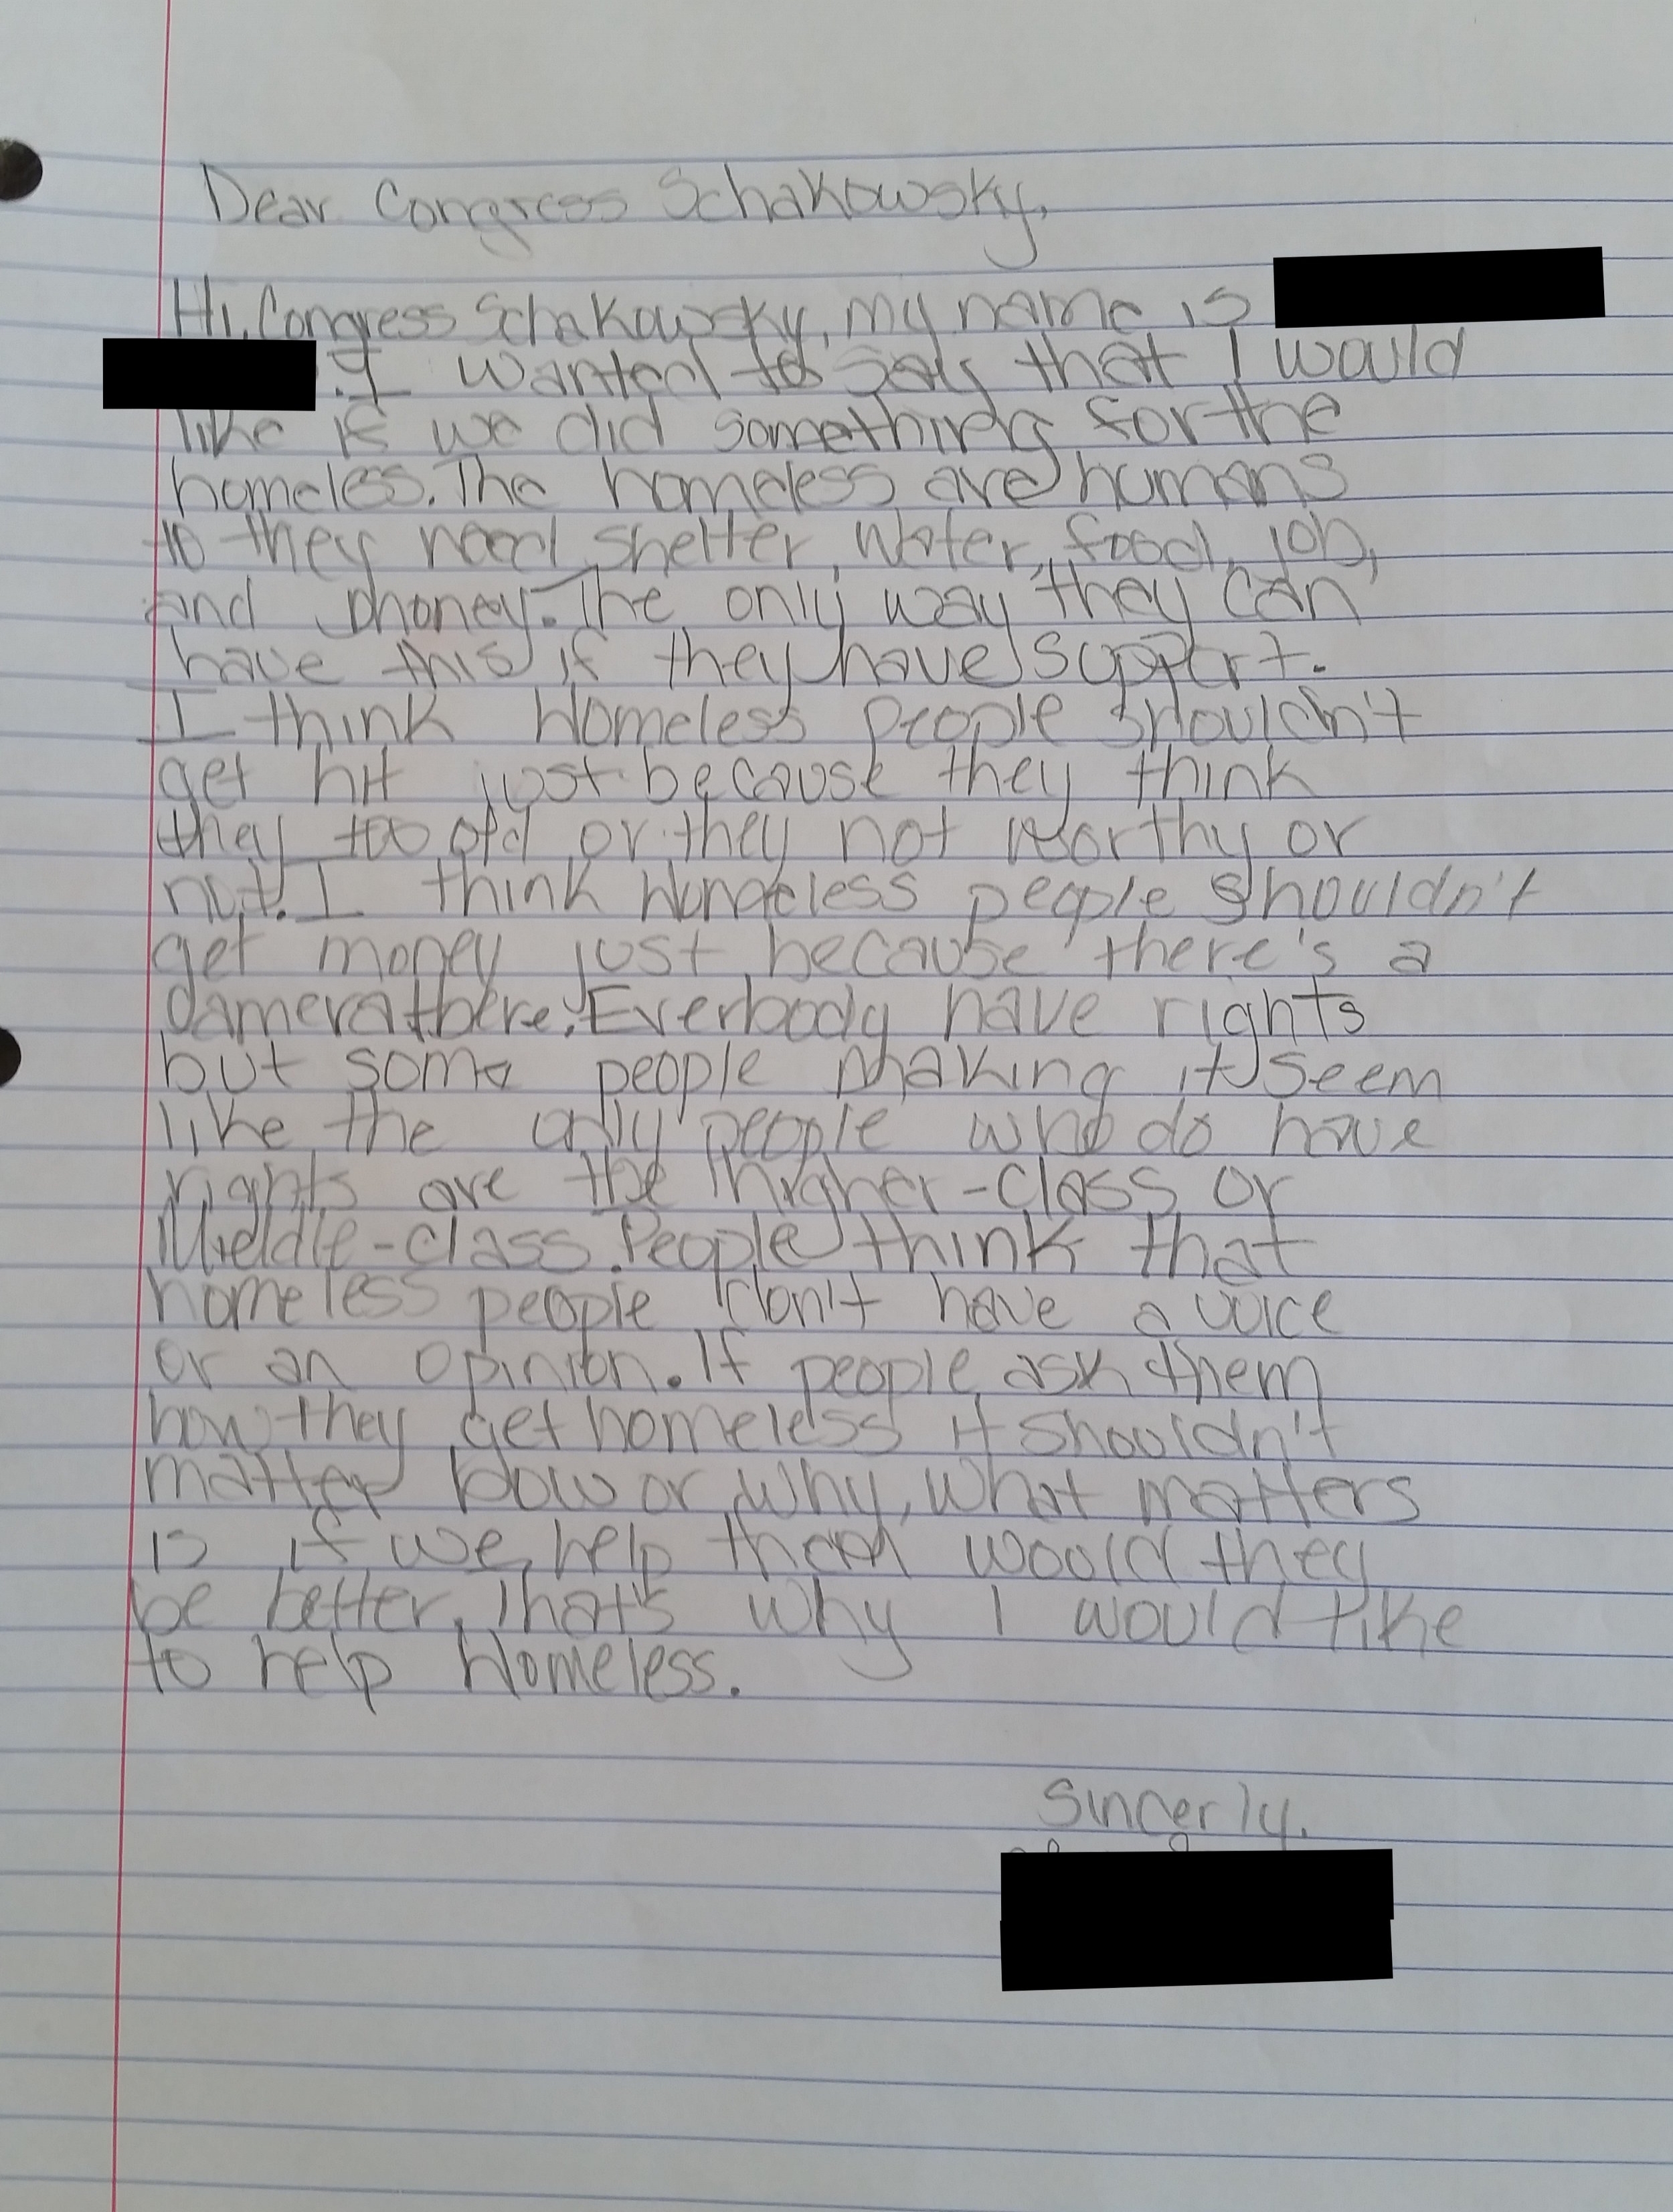 Dear Congress Schakowsky,
Hi, Congress Schakowsky, my name is
. I wanted to say that I would
like if we did something for the
homeless. The homeless are humans
to they need shelter, water, food, job,
and phoney. The only way they can
have this if they have support.
I think Homeless people shouldn't
get hit just because they think
they too old or they not worthy or
not. I think Homeless people shouldn't
get money just because there's a
camera there. Everbody have rights
but some people making it seem
like the only people who do have
rights are the higher-class or
Middle-class. People think that
homeless people don't have a voice
or an opinion. If people ask them
how they get homeless it shouldn't
matter how or why, what matters
is if we help them would they
be better. That's why I would like
to help Homeless.
Sincerly,